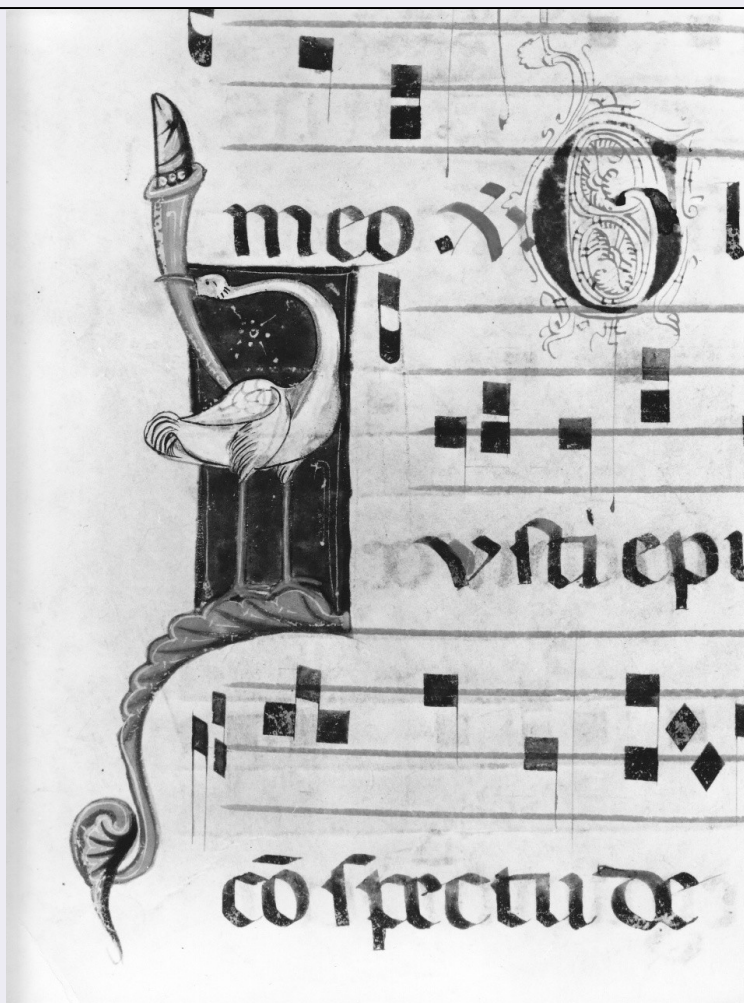 meo . ℣. Gl
Ivſti epu
cōſpectu de